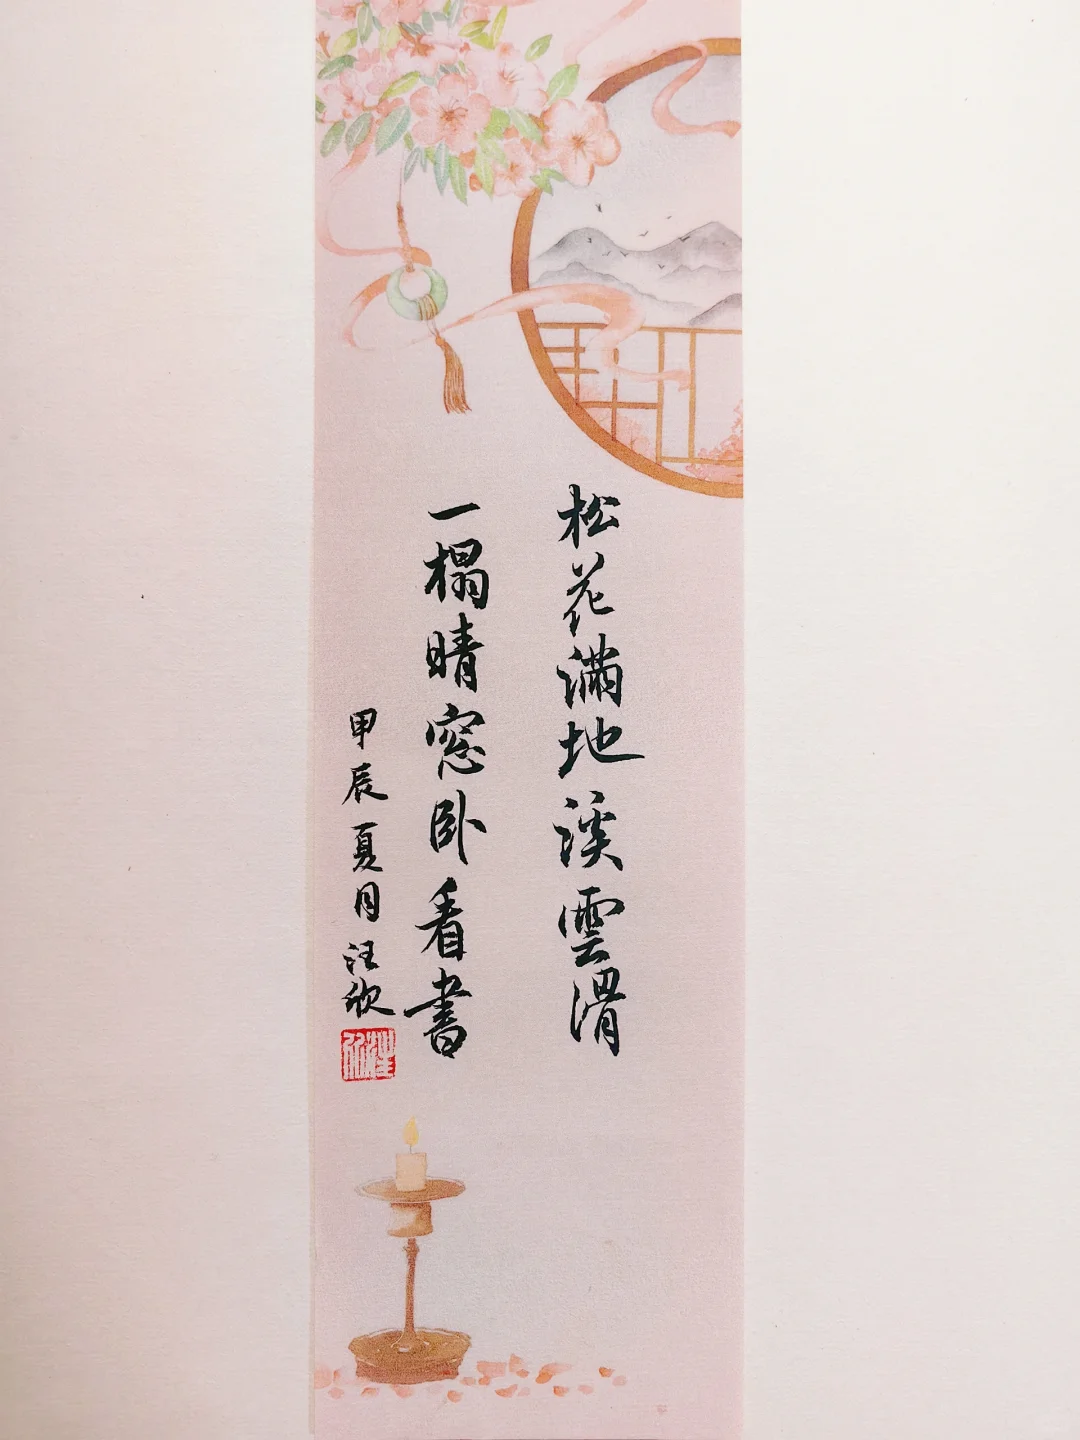 松花滿地溪雲滑
一榻晴窓卧看書
甲辰夏月汪欣